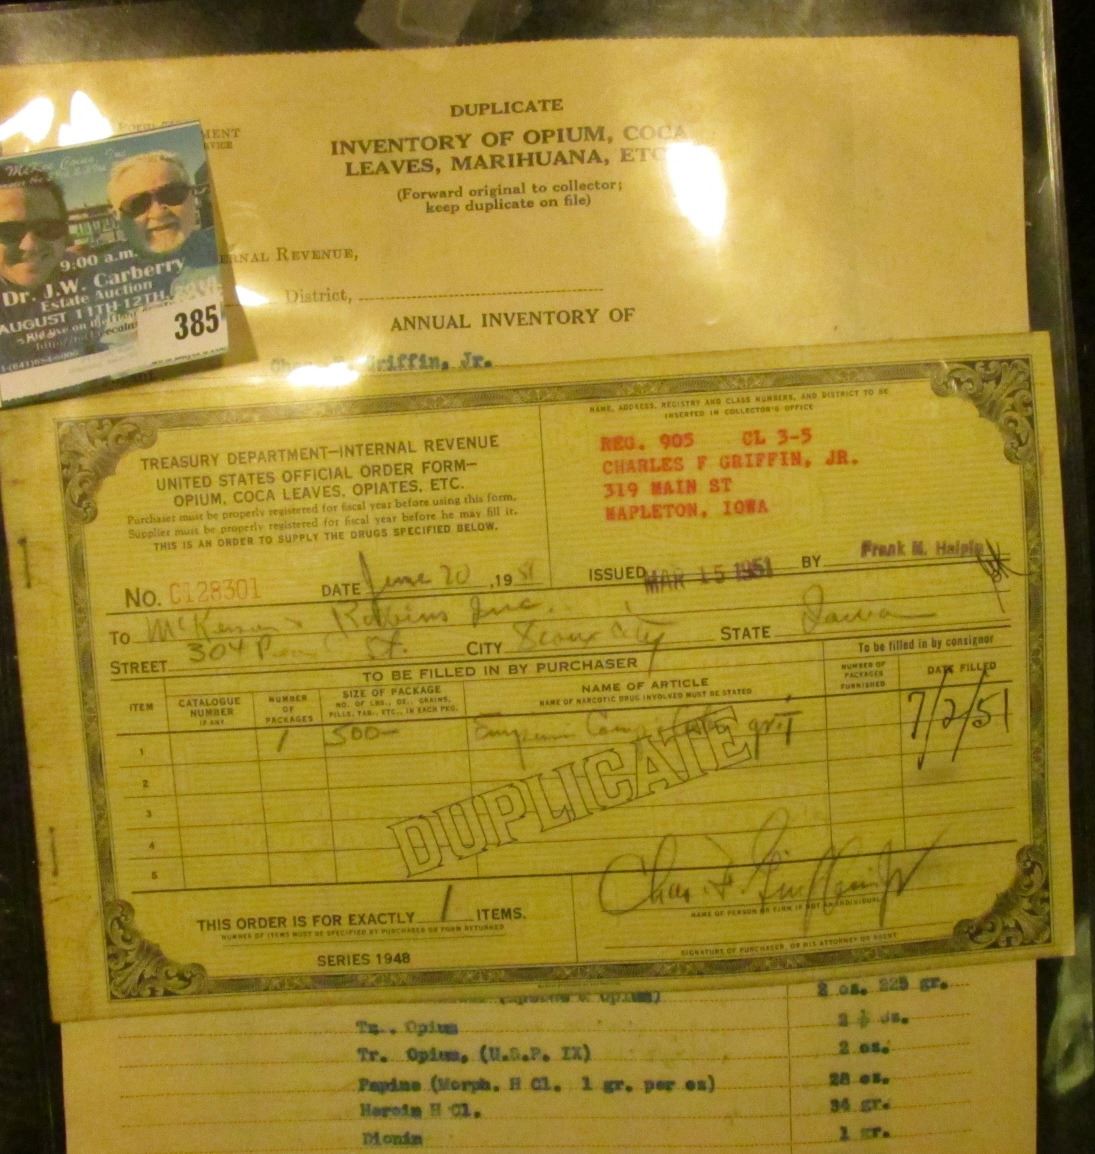 DUPLICATE
INVENTORY OF OPIUM, COCA
LEAVES, MARIHUANA, ETC
(Forward original to collector;
keep duplicate on file)
ERNAL REVENUE,
District,
ANNUAL INVENTORY OF
Griffin, Jr.
McKee Coins, Inc
9:00 a.m.
Dr. J.W. Carberry
Estate Auction
AUGUST 11TH-12TH
385
TREASURY DEPARTMENT—INTERNAL REVENUE
UNITED STATES OFFICIAL ORDER FORM—
OPIUM, COCA LEAVES, OPIATES, ETC.
Purchaser must be properly registered for fiscal year before using this form.
Supplier must be properly registered for fiscal year before he may fill it.
THIS IS AN ORDER TO SUPPLY THE DRUGS SPECIFIED BELOW.
NAME, ADDRESS, REGISTRY AND CLASS NUMBERS, AND DISTRICT TO BE
INSERTED IN COLLECTOR'S OFFICE
REG. 905 CL 3-5
CHARLES F GRIFFIN, JR.
319 MAIN ST
MAPLETON, IOWA
No. C128301 DATE June 20, 19 51 ISSUED MAR 15 1951 BY Frank M. Halpin
TO McKesson & Robbins Inc.
STREET 304 St. CITY Sioux City STATE Iowa
TO BE FILLED IN BY PURCHASER
To be filled in by consignor
ITEM
CATALOGUE NUMBER IF ANY
NUMBER OF PACKAGES
SIZE OF PACKAGE
NO. OF LBS., OZ., GRAINS, PILLS, TAB., ETC., IN EACH PKG.
NAME OF ARTICLE
NAME OF NARCOTIC DRUG INVOLVED MUST BE STATED
NUMBER OF PACKAGES FURNISHED
DATE FILLED
1 1 500 7/2/51
2
3
4
5
DUPLICATE
THIS ORDER IS FOR EXACTLY 1 ITEMS.
NUMBER OF ITEMS MUST BE SPECIFIED BY PURCHASER OR FORM RETURNED
SERIES 1948
Chas. F. Griffin Jr
NAME OF PERSON OR FIRM IF NOT AN INDIVIDUAL
SIGNATURE OF PURCHASER, OR HIS ATTORNEY OR AGENT
2 oz. 225 gr.
Tr. Opium
Tr. Opium, (U.S.P. IX) 2 oz.
Papine (Morph. H Cl. 1 gr. per oz) 28 oz.
Heroin H Cl. 34 gr.
Dionin 1 gr.